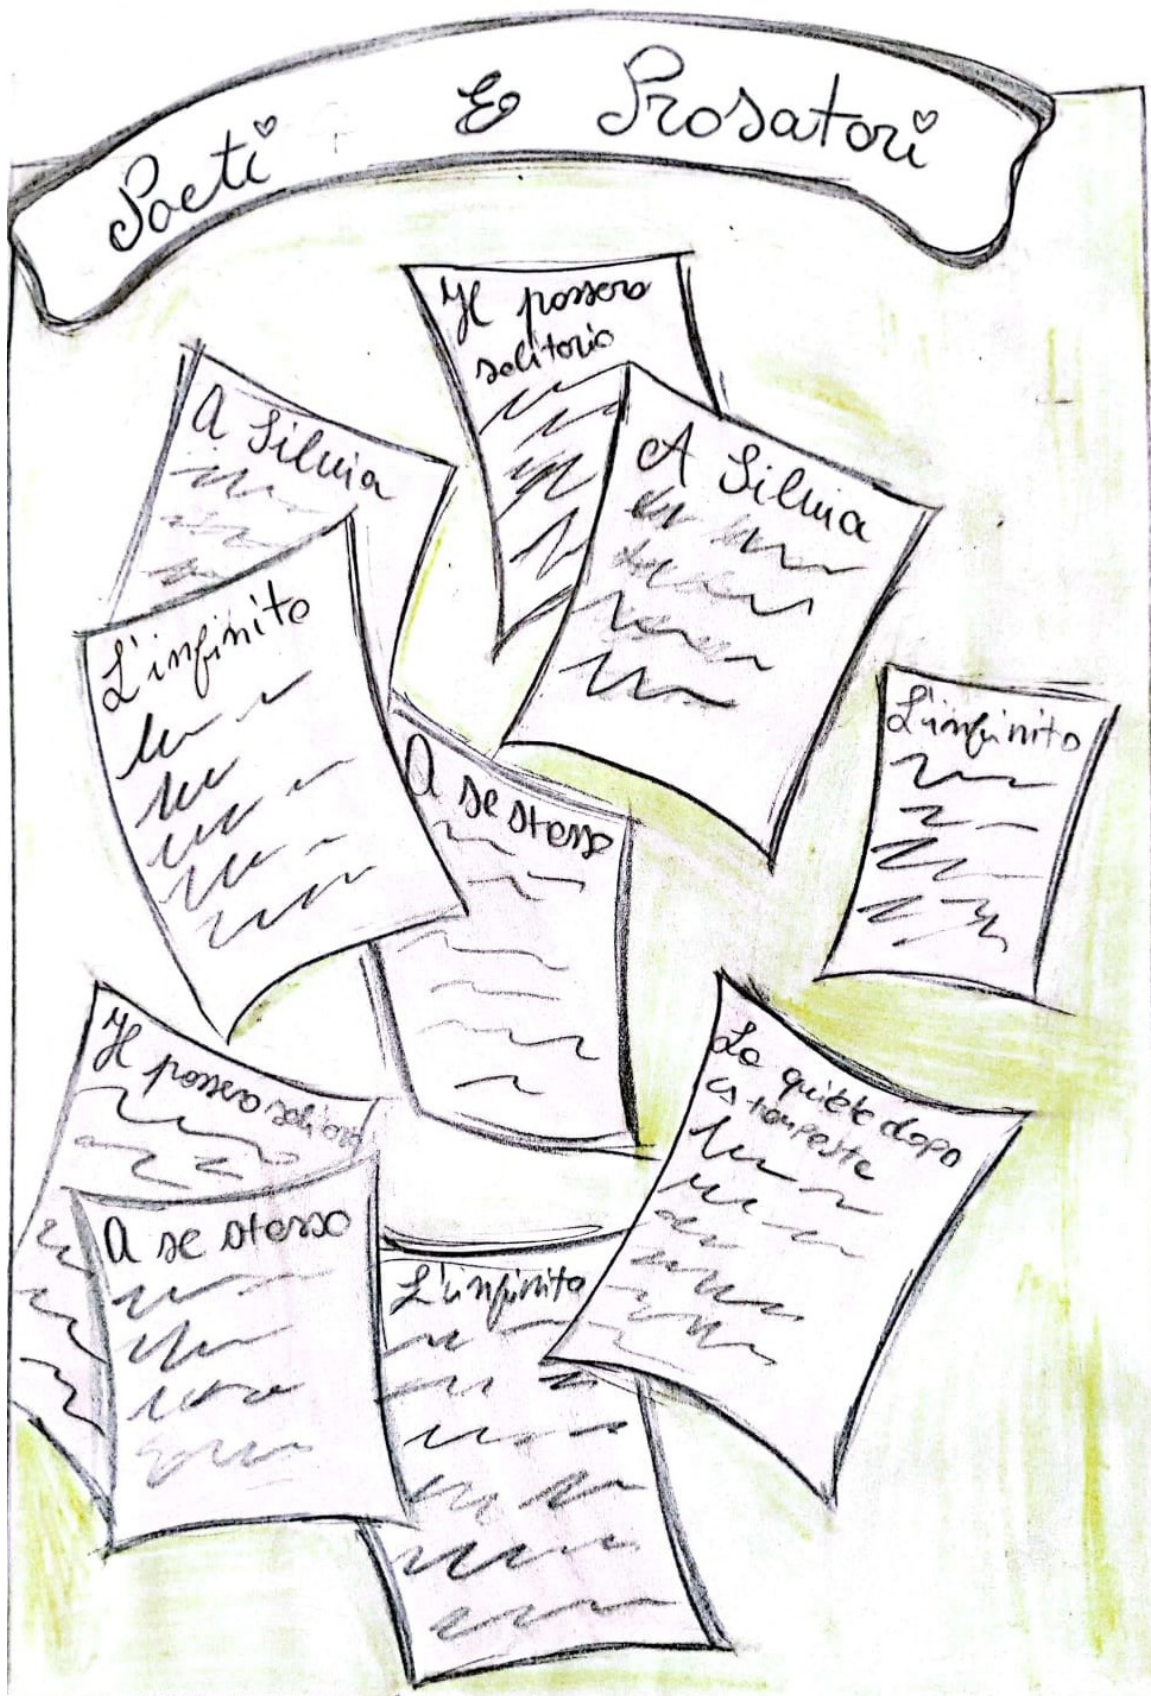 Poeti E Prosatori
Il passero
solitario
A Silvia
A Silvia
L'infinito
L'infinito
A se stesso
Il passero solitario
La quiete dopo
la tempesta
A se stesso
L'infinito